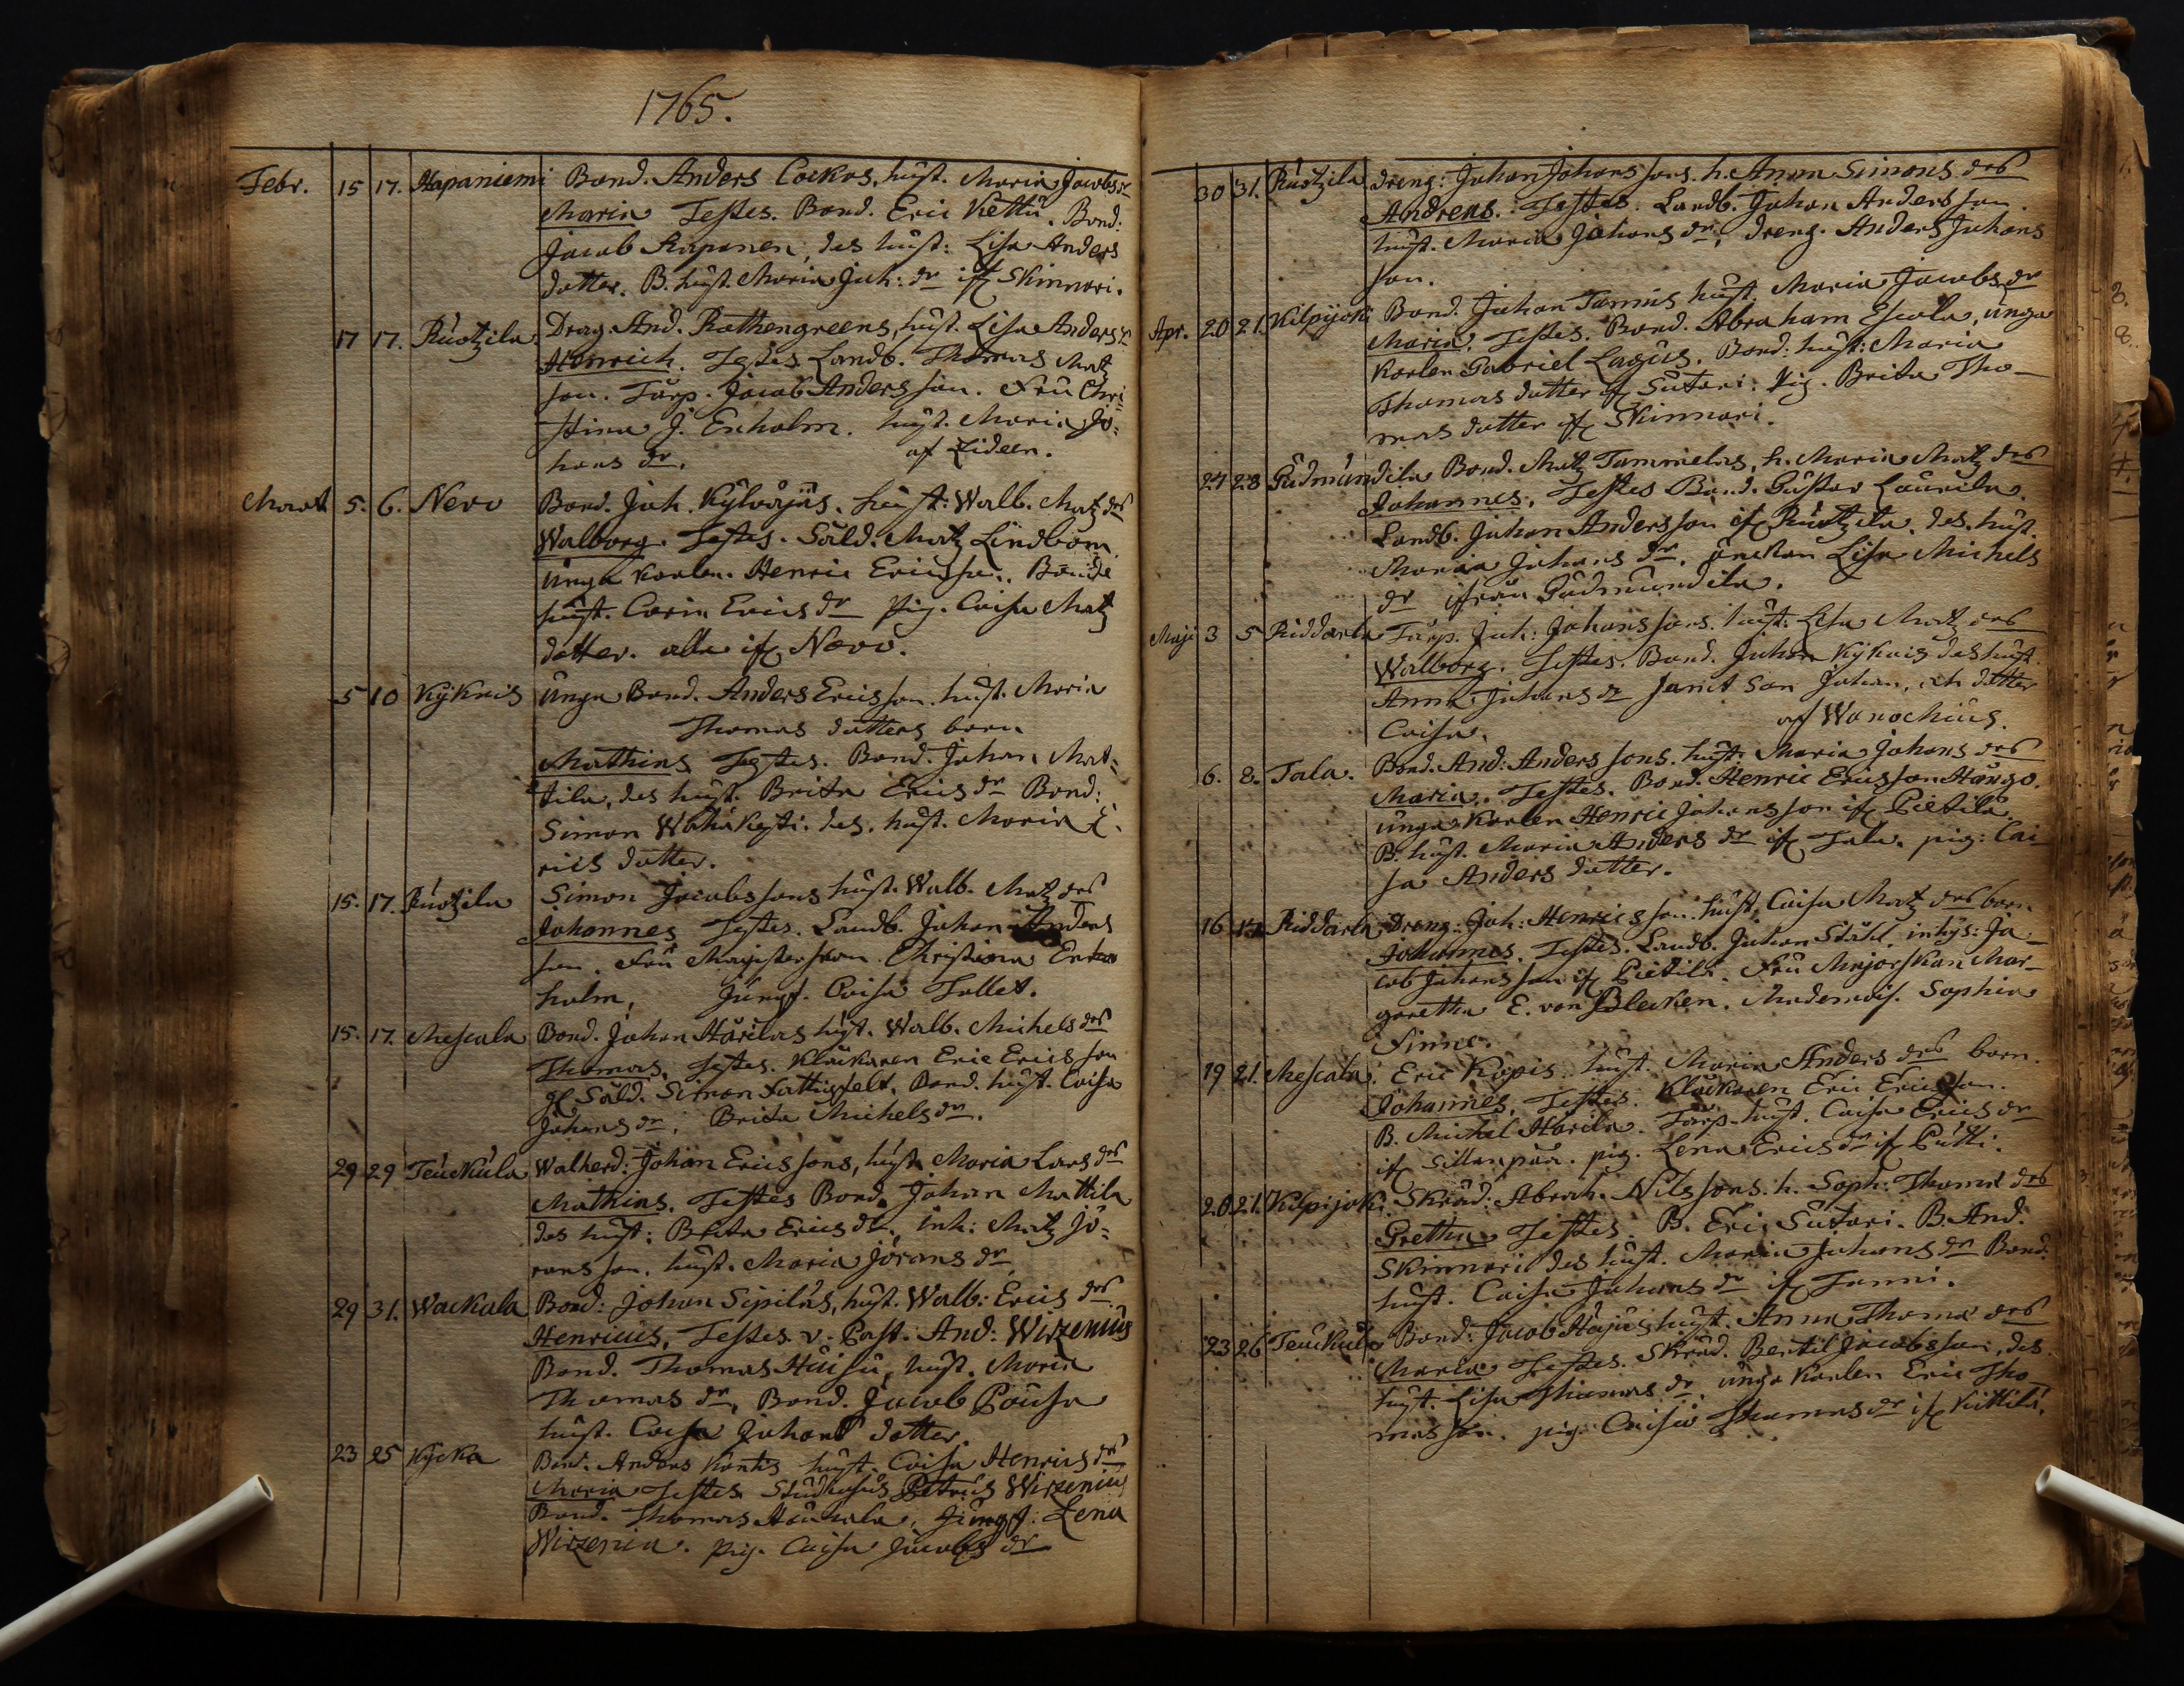 1765.
Febr. 15 17. Hapaniemi Bond. Anders Cockos, hust. Maria Jacobs dr
Maria Testes. Bond. Eric Kettu. Bond:
Jacob Kaponen, des hust: Lisa Anders
dotter. B. hust. Maria Joh: dr if Skinnari.
17 17. Ruotzila Drag. And. Rothengreens, hust. Lisa Anders dr
Henrich. Testes Landb. Thomas Matz
son. Torp. Jacob Andersson. Fru Chri-
stina J. Enholm. hust. Maria Jo-
hans dr. af Lideen.
Mart 5. 6. Nevo Bond. Joh. Kylväjäs. hust: Walb. Matz drs
Walborg. Testes. Sold. Matz Lindbom
unga karlen. Henric Ericsson. Bonde
hust. Carin Erics dr pig. Caisa Matz
dotter. alla if Nevo.
5 10 Kyknis unga Bond. Anders Ericsson. hust. Maria
Thomas dotters barn
Mathias Testes. Bond. Johan Mat-
tila, des hust. Brita Erics dr Bond:
Simon Wähäkesti. des. hust. Maria E-
rics dotter.
15. 17. Ruotzila Simon Jacobssons hust. Walb. Matz drs
Johannes Testes. Landb. Johan Anders
son. Fru Magisterskan Christina En
holm, Jungf. Caisa Tollet.
15. 17. Mescala Bond. Johan Härilas hust. Walb. Michels drs
Thomas. Testes. Klåckaren Eric Ericsson
gl Sold. Simon Fattigfelt. Bond. hust. Caisa
Johans dr. Brita Michels dr.
29 29 Teuckula Walherd: Johan Ericssons, hust Maria Lars drs
Mathias. Testes Bond. Johan Mattila
des hust: Brita Erics dr. Inh: Matz Jö-
ransson. hust. Maria Jörans dr
29 31. Wackala Bond: Johan Sipiläs, hust. Walb: Erics drs
Henricus, Testes. v. Past. And: Wirzenius
Bond. Thomas Huisu, hust. Maria
Thomas dr, Bond. Jacob Pousa
hust. Caisa Johans dotter.
23 25 Kycka Bond. Anders Kontis hust. Caisa Henrics drs
Maria Testes Studiosus Petrus Wirzenius
Bond. Thomas Haukala, Jungf: Lena
Wirzenia. pig. Caisa Jacobs dr
30 31. Ruotzila dreng: Johan Johanssons. h. Anna Simons drs
Andreas. Testes. Landb. Johan Andersson.
hust. Maria Johans dr, dreng. Anders Johans
son.
Apr. 20 21. Kilpijoki Bond. Johan Tannis hust. Maria Jacobs dr
Maria. Testes. Bond. Abraham Escola, unga
karlen Gabriel Lagus. Bond: hust: Maria
Thomas dotter if Sutari. Pig. Brita Tho-
mas dotter if Skinnari.
27 28 Gudmundila Bond. Matz Tammelas, h. Maria Matz drs
Johannes. Testes Bond. Gustav Laurila.
Landb. Johan Andersson if Ruotzila. des hust.
Maria Johans dr. änckan Lisa Michels
dr ifrån Gudmundila.
Maji 3 5 Riddarla Torp. Joh: Johanssons. hust: Lisa Matz drs
Walborg. Testes. Bond. Johan Kyknis des hust.
Anna Johans dr samt son Johan, och dotter
Caisa. af Wanochius.
6. 8. Tala. Bond. And: Anderssons. hust. Maria Johans drs
Maria. Testes. Bond. Henric Ericsson Haugo.
unga karlen Henric Johansson if Pietilä
B. hust. Maria Anders dr if Tala. pig: Cai
sa Anders dotter.
16 17 Riddarla. Dreng. Joh: Henricsson. hust. Caisa Matz drs barn
Johannes. Testes. Landb. Johan Ståhl. inhys: Ja-
cob Johansson if Pietilä. Fru Majorskan Mar-
garetha E. von Blecken. Mademois. Sophia
Finne.
19 21. Mescala. Eric Kopis hust. Maria Anders drs barn.
Johannes, Testes. Klåckaren Eric Ericsson.
B. Michel Härila. Torp. hust. Caisa Erics dr
if Sillanpää. pig. Lena Erics dr if Putti.
20. 21. Kilpijoki. Skräd: Abrah. Nilssons. h. Soph: Thomæ drs
Gretha Testes. B. Eric Sutari. B. And.
Skinnari des hust. Maria Johans dr Bond.
hust. Caisa Johans dr if Tanni.
23 26 Teuckula Bond: Jacob Hojus hust. Anna Thomæ drs
Maria Testes. Skräd. Bertil Jacobsson, des
hust. Lisa Thomas dr. unga karlen Eric Tho-
masson. pig. Caisa Thomas dr if Kittilä.